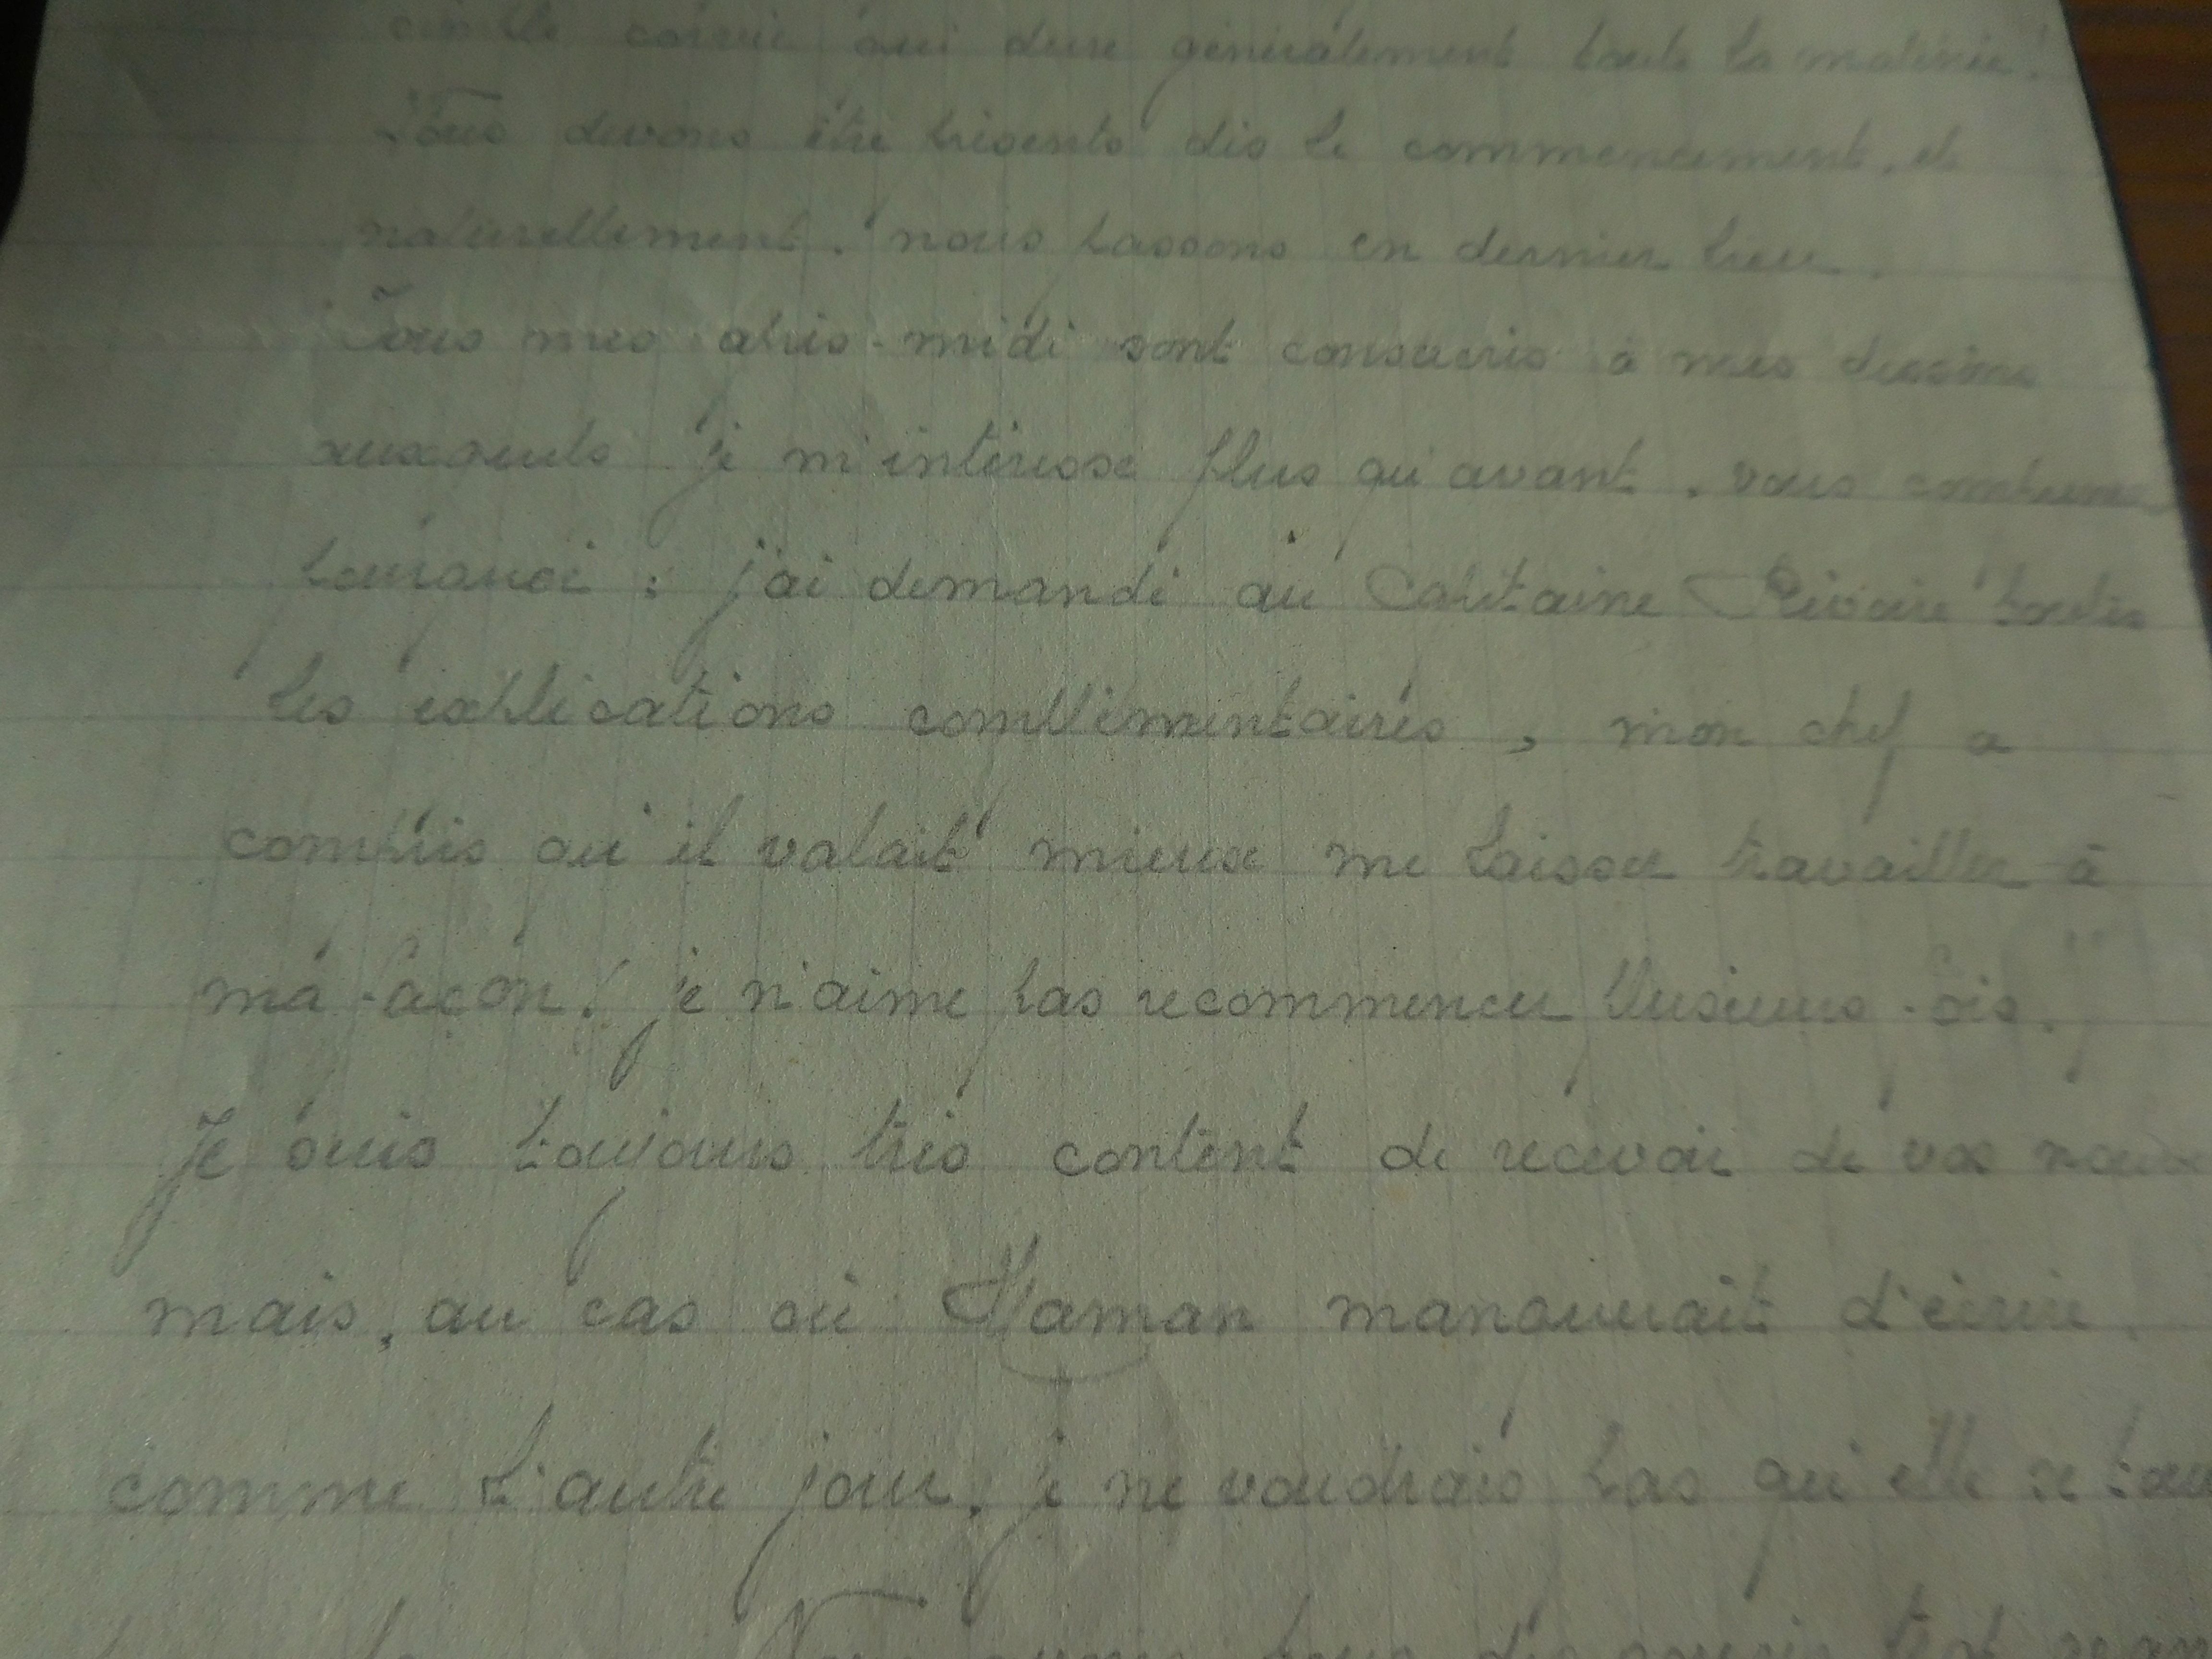 corvée qui dure généralement toute la matinée !
Nous devons être présents dès le commencement, et
naturellement, nous passons en dernier lieu.
Tous mes après-midi sont consacrés à mes dessins
auxquels je m'intéresse plus qu'avant, vous comprenez
pourquoi : j'ai demandé au Capitaine Rivoire toutes
les explications complémentaires, mon chef a
compris qu'il valait mieux me laisser travailler à
ma façon ! je n'aime pas recommencer plusieurs fois.
Je suis toujours très content de recevoir de vos
mais, au cas où Maman manquerait d'écrire
comme l'autre jour, je ne voudrais pas qu'elle se